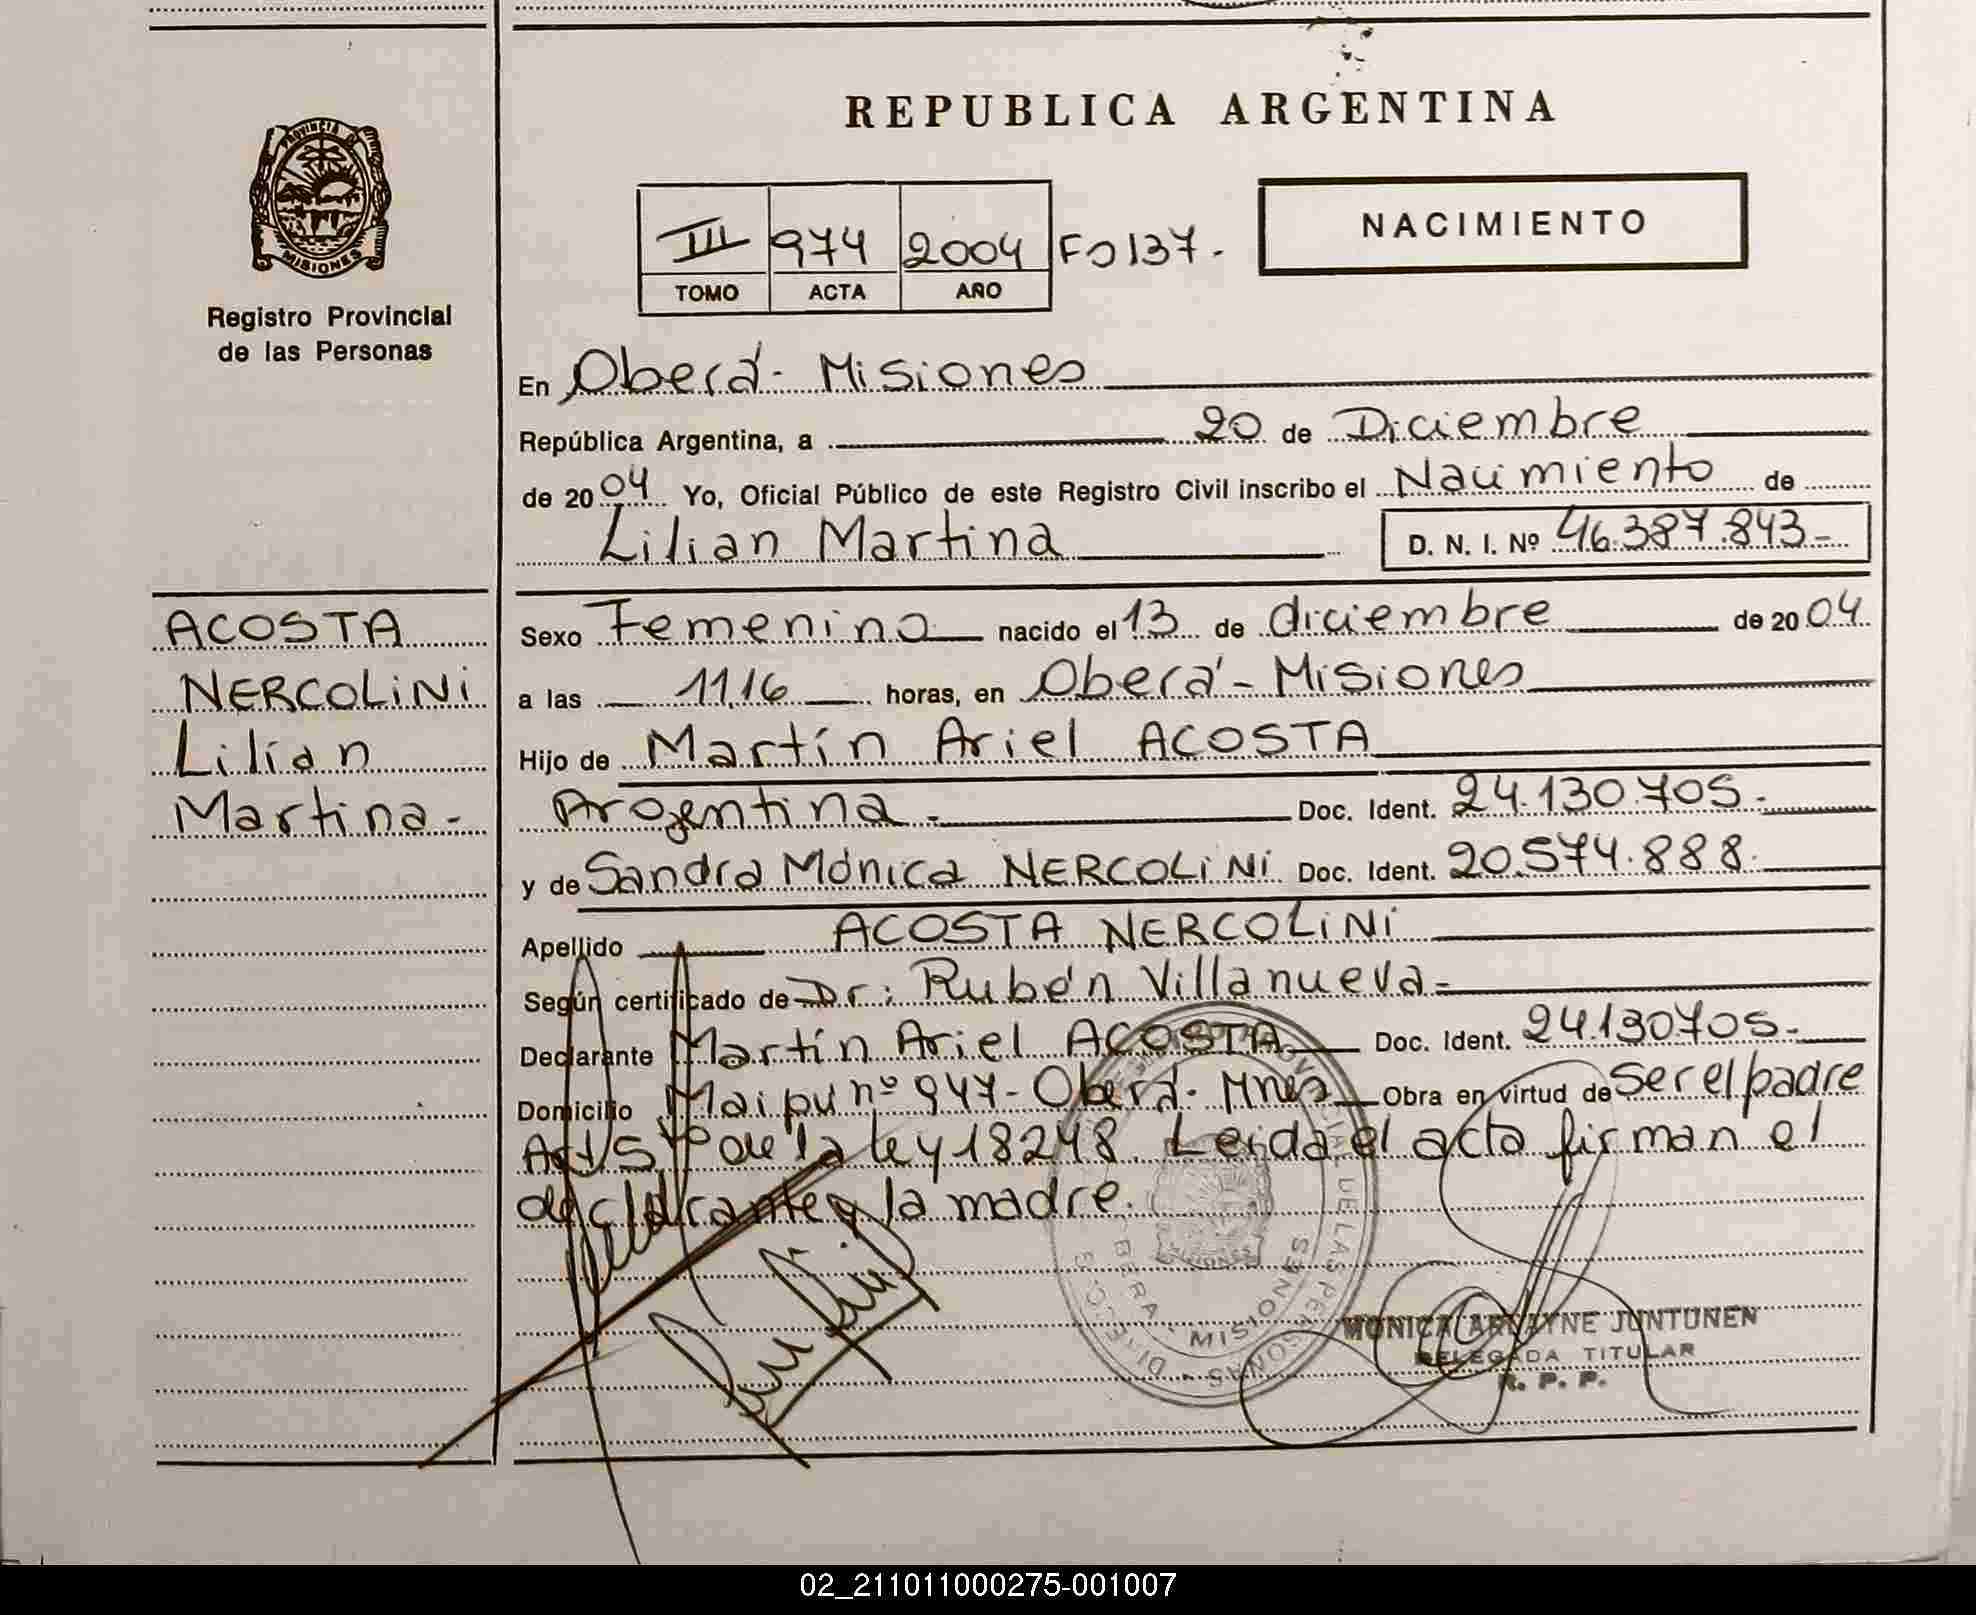 REPUBLICA ARGENTINA
PROVINCIA DE
MISIONES
Registro Provincial
de las Personas
III 974 2004 Fo 137.
TOMO ACTA AÑO
NACIMIENTO
En Oberá - Misiones
República Argentina, a 20 de Diciembre
de 2004 Yo, Oficial Público de este Registro Civil inscribo el Nacimiento de
Lilian Martina D. N. I. Nº 46.387.843-
ACOSTA
NERCOLiNi
Lilian
Martina-
Sexo Femenino nacido el 13 de diciembre de 2004
a las 11,16 horas, en Oberá - Misiones
Hijo de Martín Ariel ACOSTA
Argentina.- Doc. Ident. 24.130.705.-
y de Sandra Mónica NERCOLiNi Doc. Ident. 20.574.888.
Apellido ACOSTA NERCOLiNi
Según certificado de Dr: Rubén Villanueva-
Declarante Martín Ariel ACOSTA Doc. Ident. 24.130705.-
Domicilio Maipu nº 947- Oberá- Mnes Obra en virtud de Ser el padre
Art 5º de la ley 18248. Leida el acta firman el
declarante y la madre.
MISIONES
MONICA ARLAYNE JUNTUNEN
DELEGADA TITULAR
R. P. P.
02_211011000275-001007